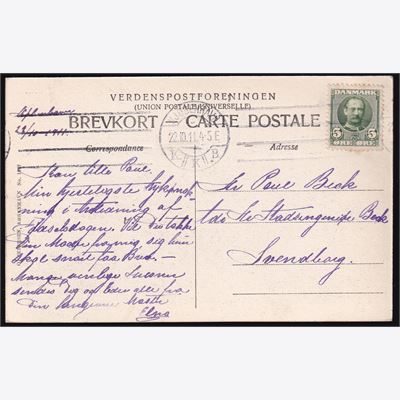 VERDENSPOSTFORENINGEN
(UNION POSTALE UNIVERSELLE)
BREVKORT – CARTE POSTALE
Correspondance
Adresse
DANMARK
5 5
ØRE ØRE
22.10.11. 4-5 E
København
22/10 1911.
Kære lille Paul.
Min hjerteligste Lykønsk-
ning i Anledning af
Fødselsdagen. Vil du takke
din Moder
skal snart faa Brev. –
Mange venlige Hilsener
sendes dig og Eder alle fra
din hengivne Moster
Elna
Hr Paul Beck
Hr Stadsingeniør Beck
Svendborg.